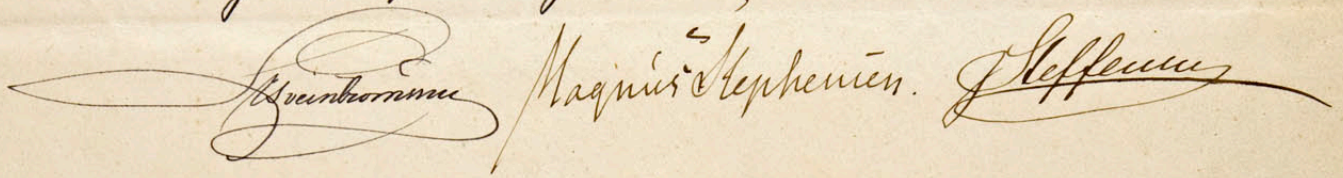 LESveinbiornson Magnús Stephensen. JSteffensen